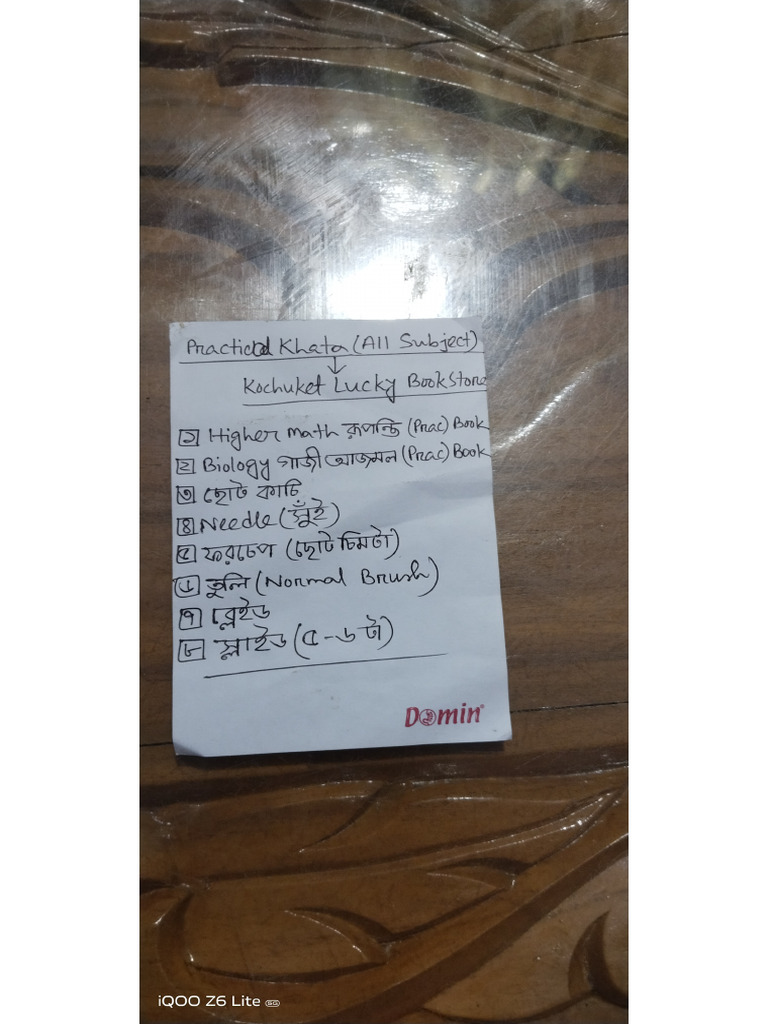 Practical Khata (All Subject)
↓
Kochuket Lucky Book Store
১ Higher math রূপান্তি (Prac) Book
২ Biology গাজী আজমল (Prac) Book
৩ ছোট কাচি
৪ Needle (সুঁই)
৫ ফরচেপ (ছোট চিমটা)
৬ তুলি (Normal Brush)
৭ ব্লেইড
৮ স্লাইড (৫-৬ টা)
Domin
iQOO Z6 Lite 5G